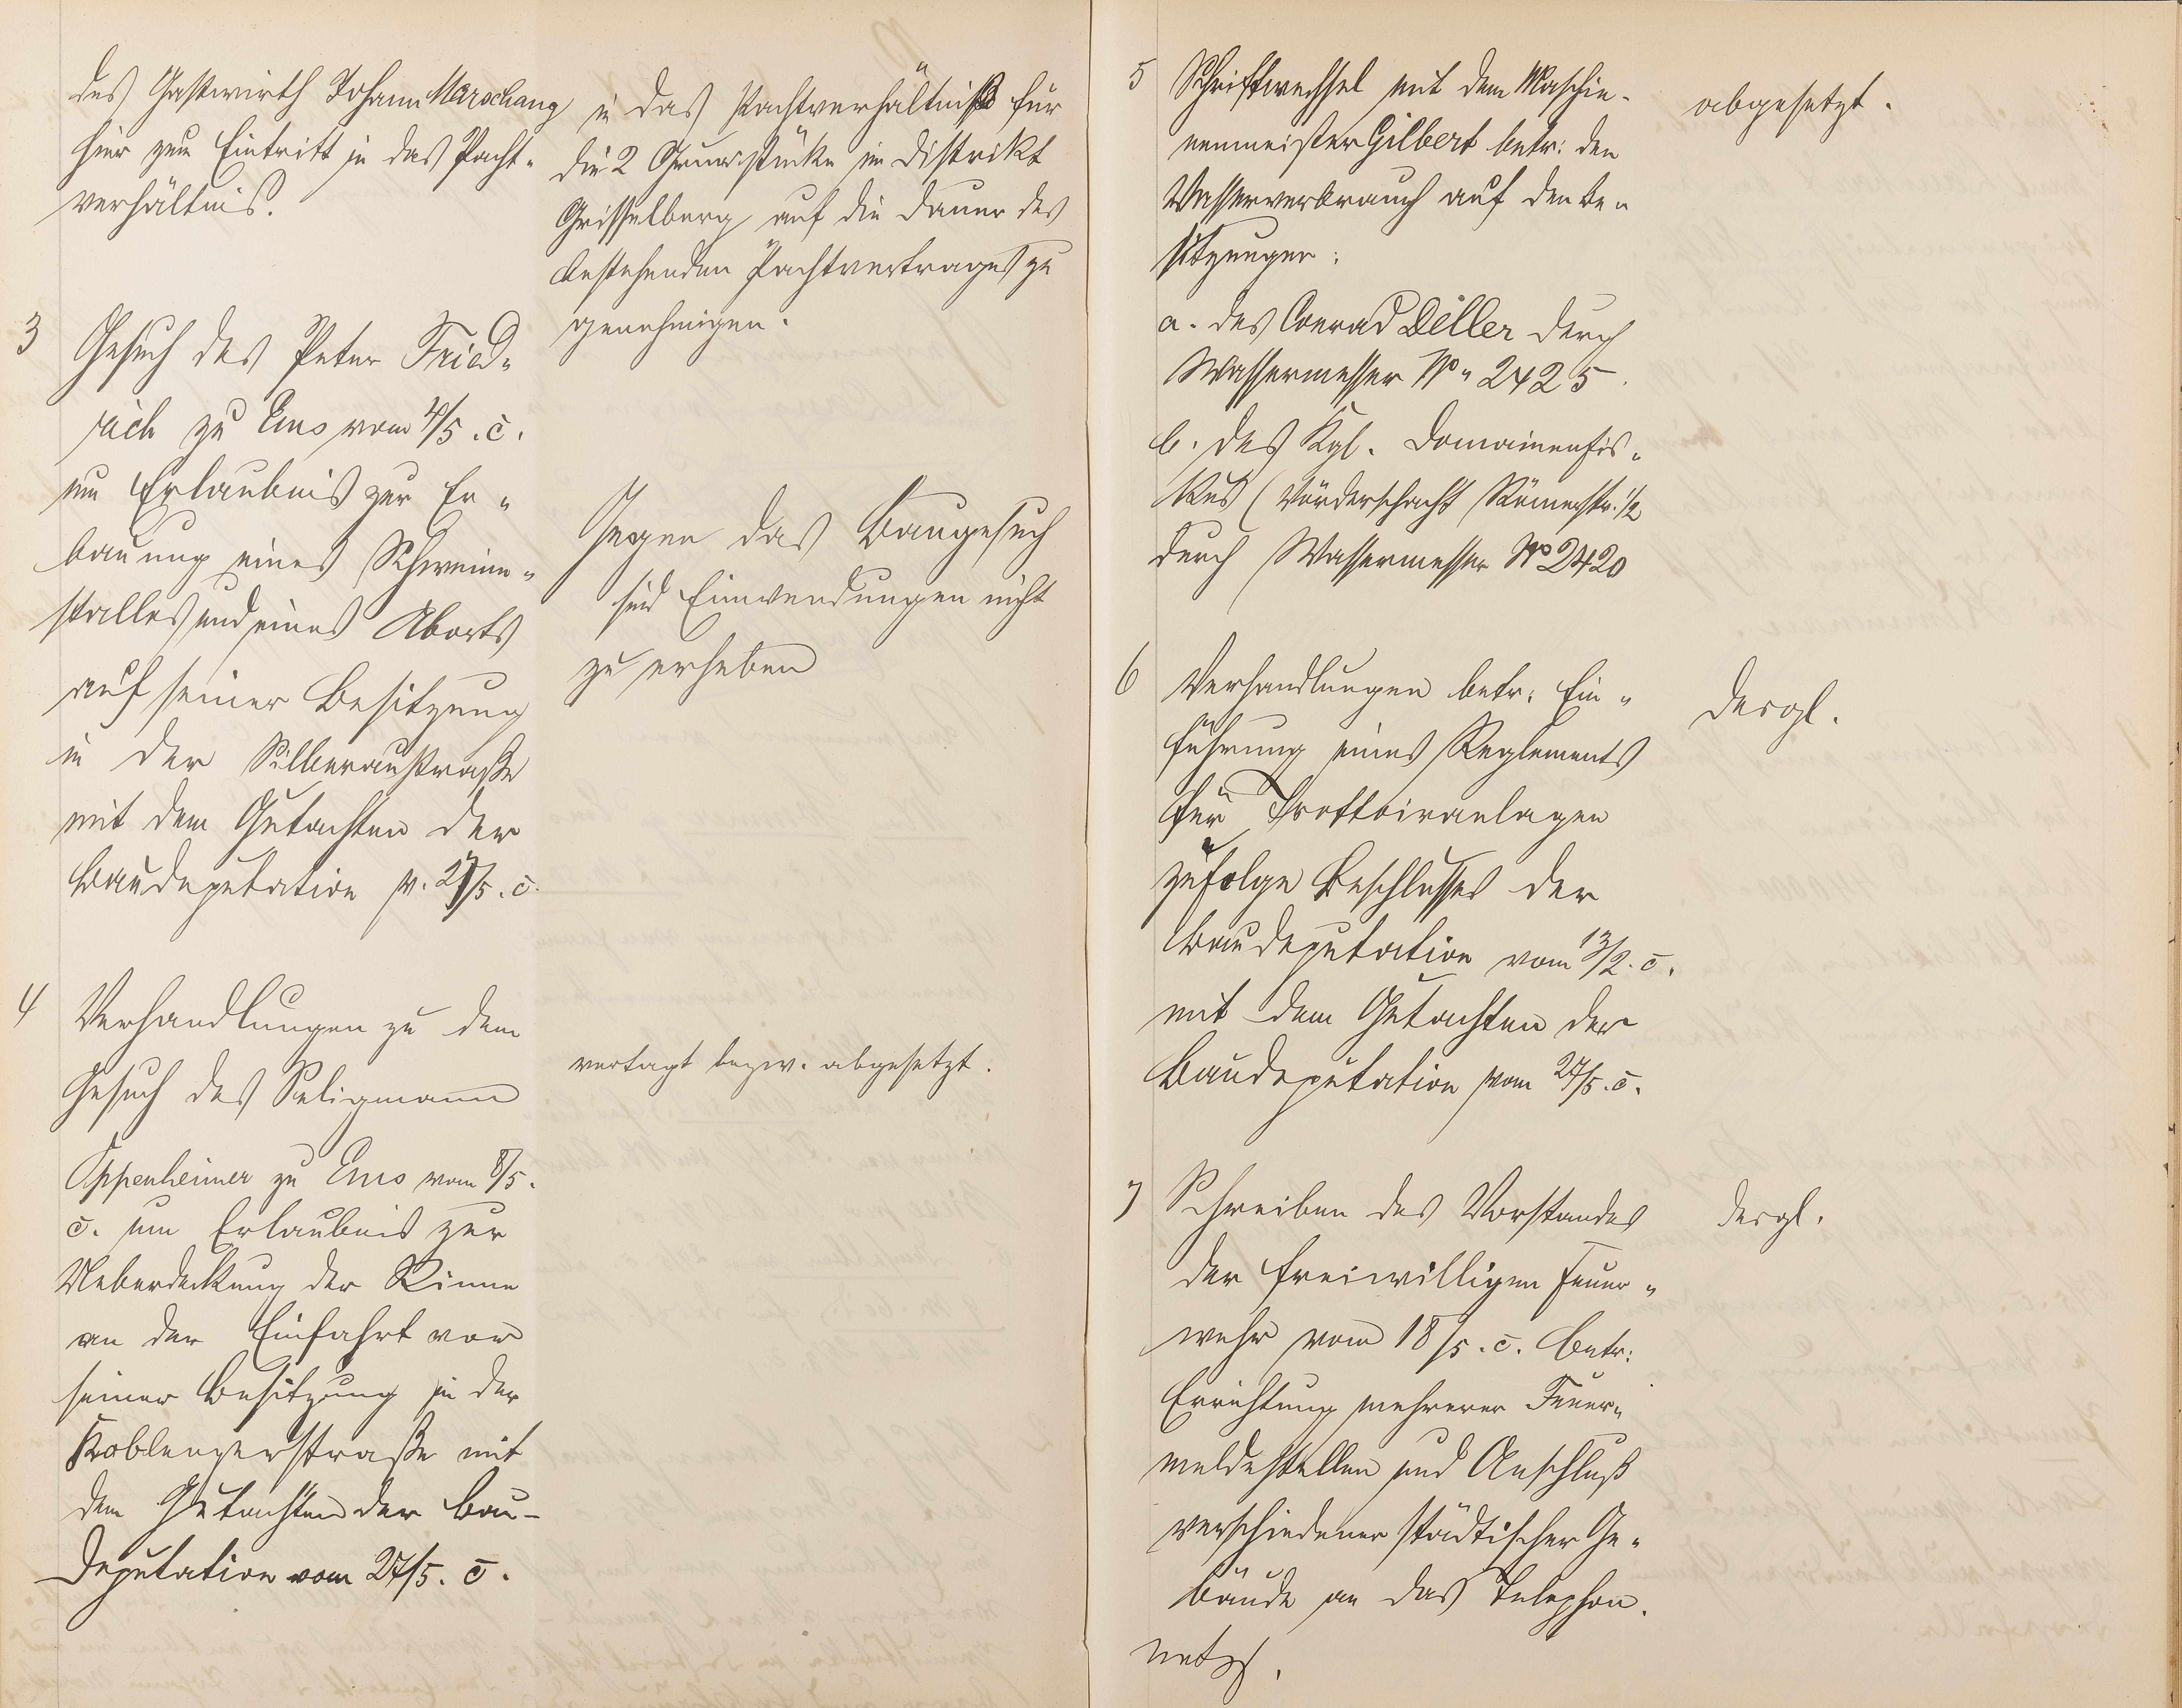 des Gastwirth Johann Marschang
hier zum Eintritt in das Pacht-
verhältnis.
in das Pachtverhältniß für
die 2 Grundstücke im Distrikt
Grisselberg auf die Dauer des
bestehenden Pachtvertrages zu
genehmigen.
3 Gesuch des Peter Fried-
rich zu Ems vom 4/5. c.
um Erlaubnis zur Er-
bauung eines Schweine-
stalles und eines Aborts
auf seiner Besitzung
in der Silberaustraße
mit dem Gutachten der
Baudeputation v. 27/5. c.
Gegen das Baugesuch
sind Einwendungen nicht
zu erheben
4 Verhandlungen zu dem
Gesuch des Seligmann
Oppenheimer zu Ems vom 8/5.
c. um Erlaubnis zur
Ueberdeckung der Rinne
an der Einfahrt vor
seiner Besitzung in der
Koblenzerstraße mit
dem Gutachten der Bau-
deputation vom 27/5. c.
vertagt bezw. abgesetzt.
5 Schriftwechsel mit dem Maschie-
nenmeister Gilbert betr: den
Wasserverbrauch auf den Be-
sitzungen:
a. des Conrad Diller durch
Wassermesser No 2425.
b. des Kgl. Domainenfis-
kus (Vörderschacht Römerstr. 1/2
durch Wassermesser No 2420
abgesetzt.
6 Verhandlungen betr: Ein-
führung eines Reglements
für Trottoiranlagen
zufolge Beschlusses der
Baudeputation vom 13/2. c.
mit dem Gutachten der
Baudeputation vom 27/5. c.
desgl.
7 Schreiben des Vorstandes
der freiwilligen Feuer-
wehr vom 18/5. c. betr:
Errichtung mehrerer Feuer-
meldestellen und Anschluß
verschiedener städtischer Ge-
bäude an das Telephon-
netz.
desgl.